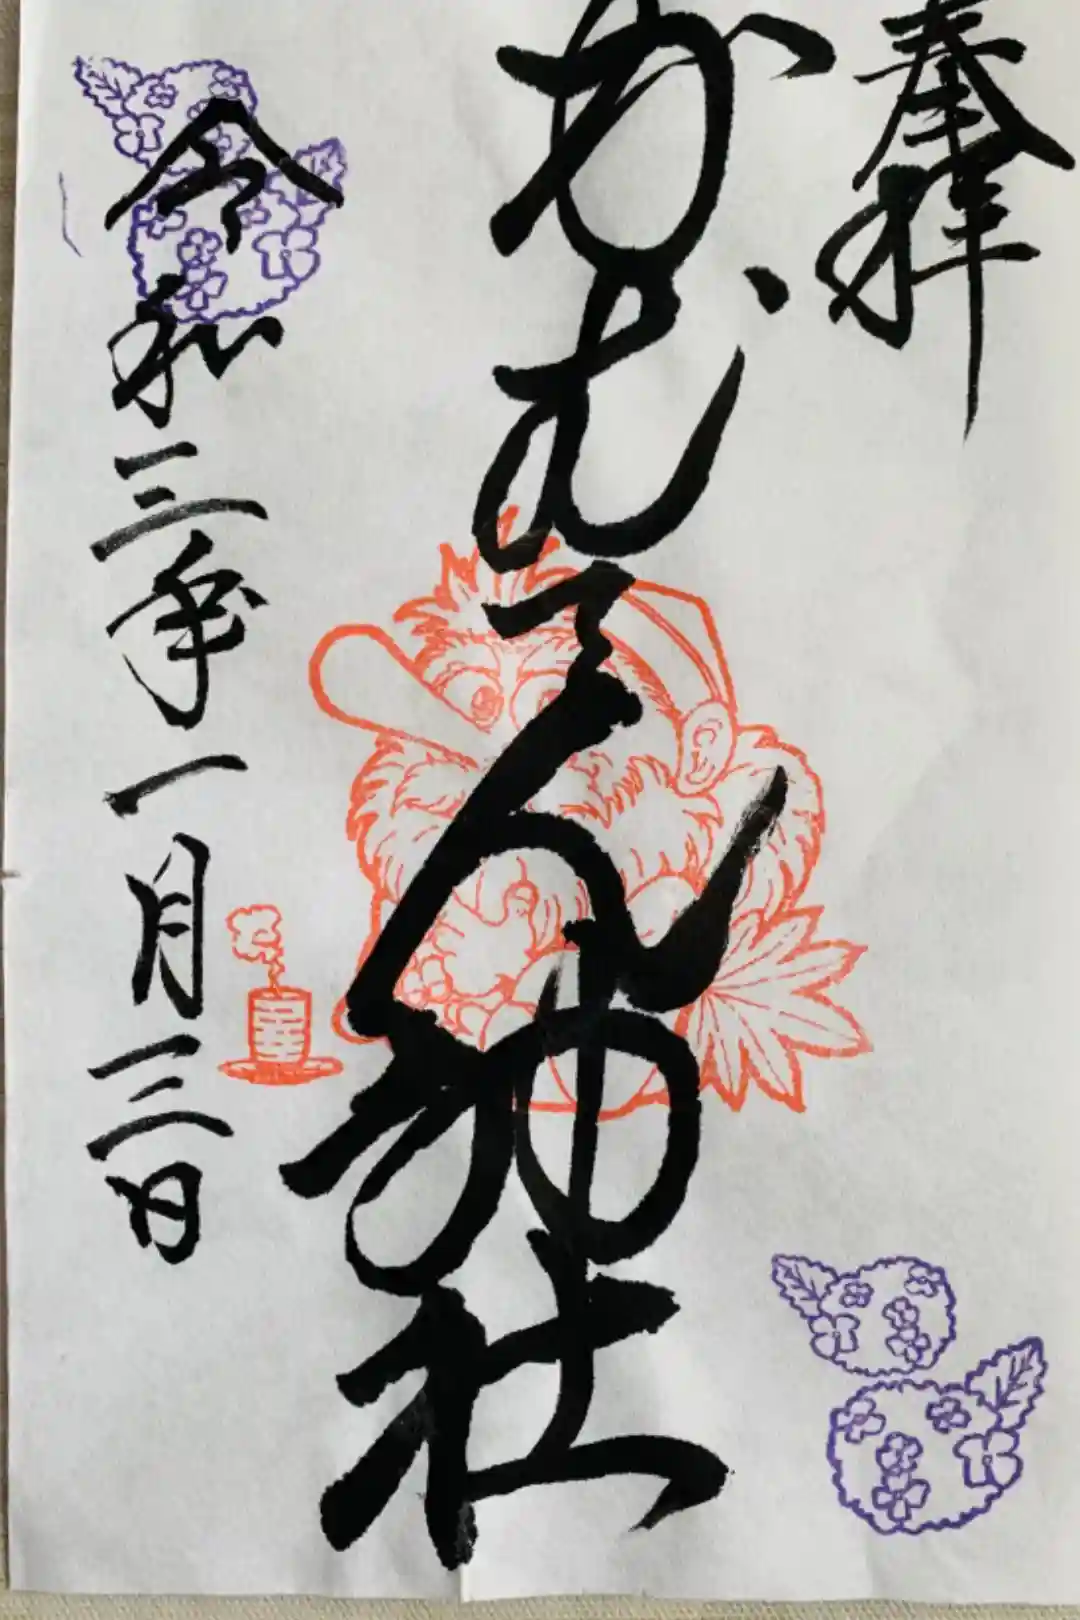 奉拝
かむてん神社
令和三年一月三日